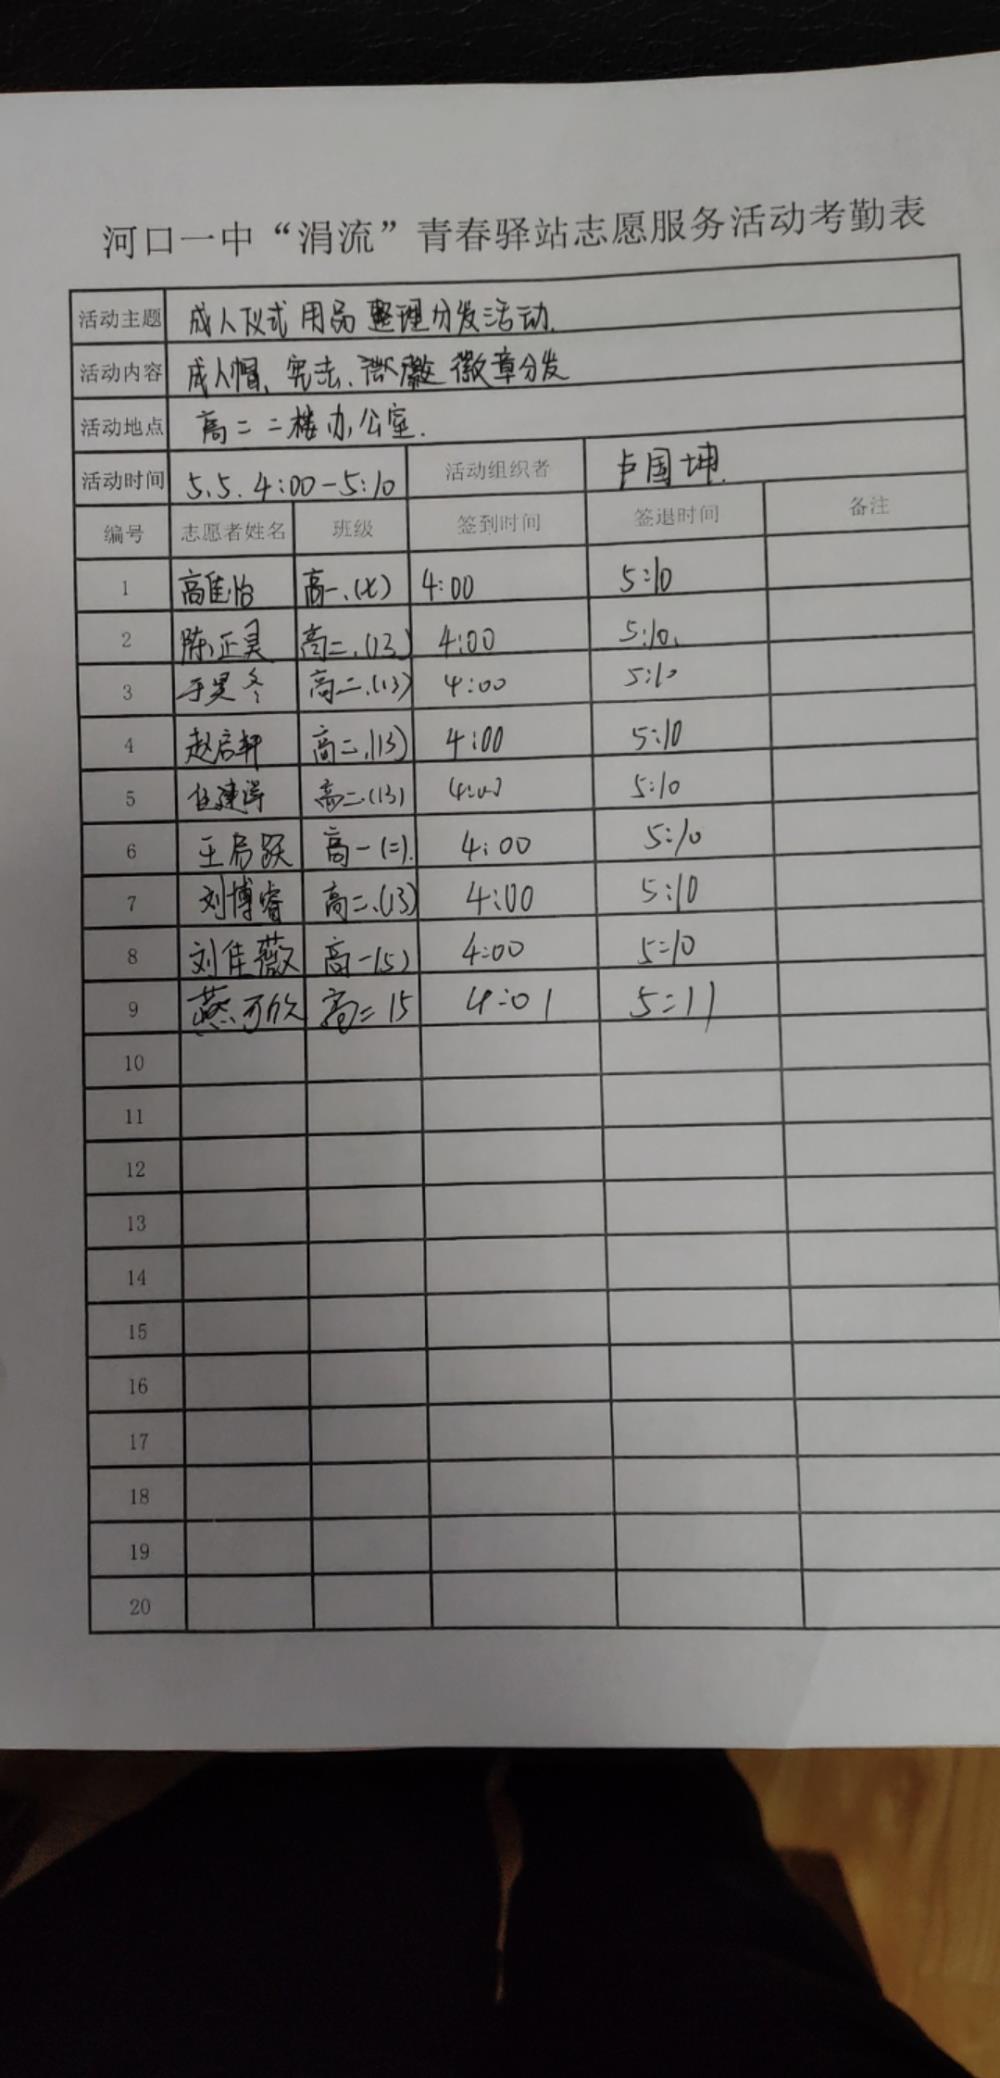 河口一中“涓流”青春驿站志愿服务活动考勤表
活动主题 成人仪式用品整理分发活动.
活动内容 成人帽、宪法、徽章分发
活动地点 高二二楼办公室.
活动时间 5.5. 4:00-5:10 活动组织者 卢国坤.
编号 志愿者姓名 班级 签到时间 签退时间 备注
1 高佳怡 高一.(七) 4:00 5:10
2 陈正昊 高二.(13) 4:00 5:10.
3 于昊冬 高二.(13) 4:00 5:10
4 赵启轩 高二.(13) 4:00 5:10
5 任建 高二.(13) 4:00 5:10
6 王启跃 高一(二). 4:00 5:10
7 刘博睿 高二.(13) 4:00 5:10
8 刘佳薇 高一(5) 4:00 5:10
9 燕可欣 高二15 4:01 5:11
10
11
12
13
14
15
16
17
18
19
20